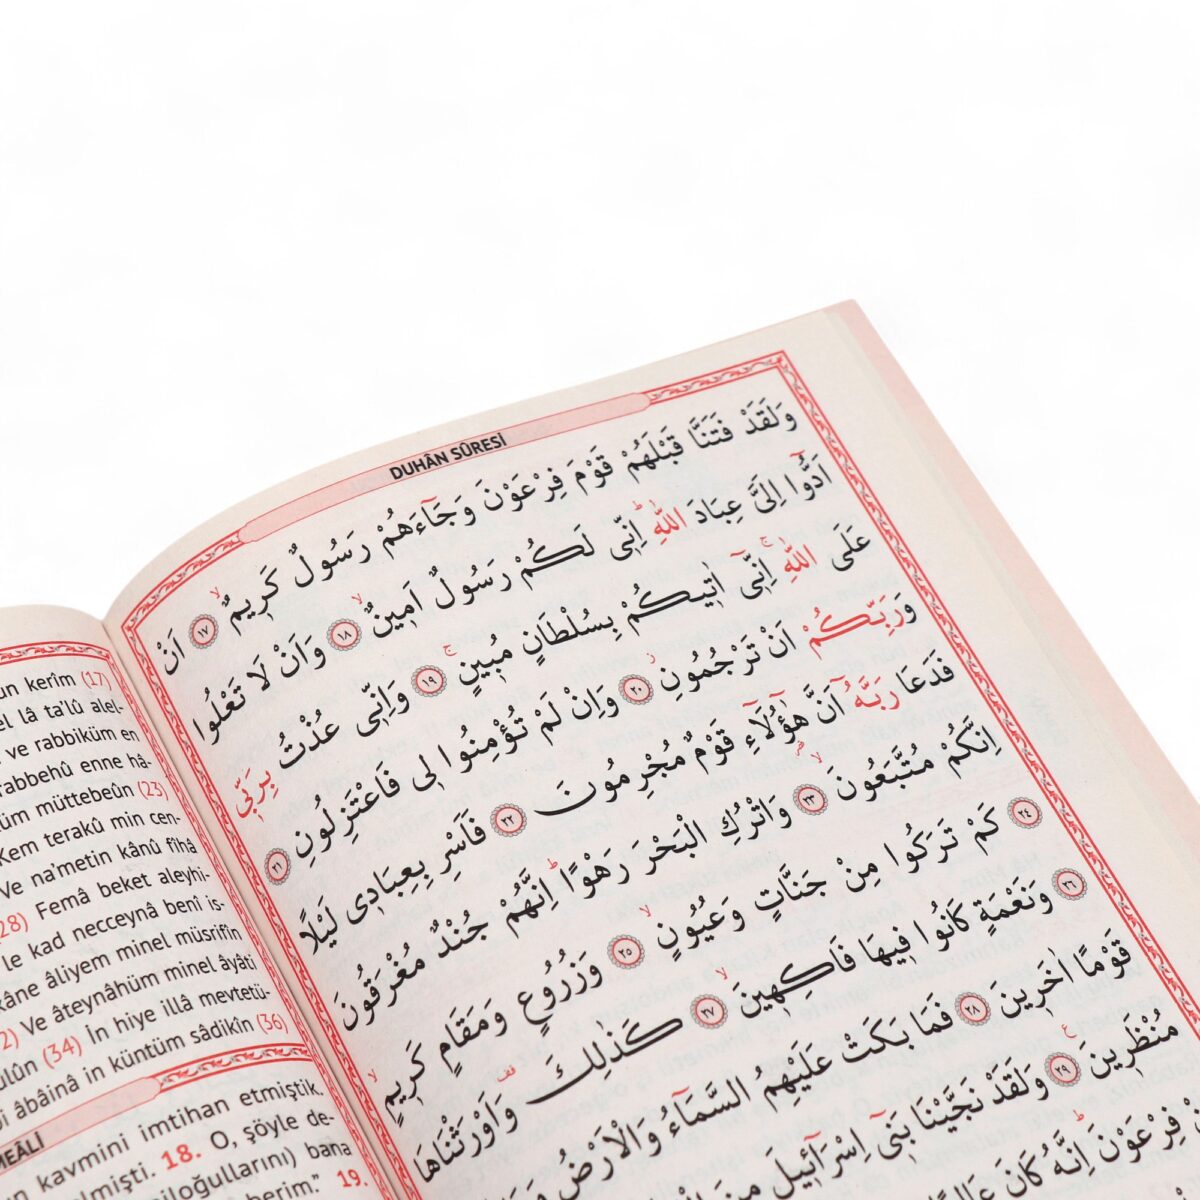 DUHÂN SÛRESİ
وَلَقَدْ فَتَنَّا قَبْلَهُمْ قَوْمَ فِرْعَوْنَ وَجَٓاءَهُمْ رَسُولٌ كَر۪يمٌۙ ١٧ اَنْ
اَدُّٓوا اِلَيَّ عِبَادَ اللّٰهِۜ اِنّ۪ي لَكُمْ رَسُولٌ اَم۪ينٌۙ ١٨ وَاَنْ لَا تَعْلُوا
عَلَى اللّٰهِۚ اِنّ۪ٓي اٰت۪يكُمْ بِسُلْطَانٍ مُب۪ينٍۚ ١٩ وَاِنّ۪ي عُذْتُ بِرَبّ۪ي
وَرَبِّكُمْ اَنْ تَرْجُمُونِۘ ٢٠ وَاِنْ لَمْ تُؤْمِنُوا ل۪ي فَاعْتَزِلُونِ ٢١
فَدَعَا رَبَّهُٓ اَنَّ هٰٓؤُلَٓاءِ قَوْمٌ مُجْرِمُونَ ٢٢ فَاَسْرِ بِعِبَاد۪ي لَيْلًا
اِنَّكُمْ مُتَّبَعُونَۙ ٢٣ وَاتْرُكِ الْبَحْرَ رَهْوًاۜ اِنَّهُمْ جُنْدٌ مُغْرَقُونَ
٢٤ كَمْ تَرَكُوا مِنْ جَنَّاتٍ وَعُيُونٍۙ ٢٥ وَزُرُوعٍ وَمَقَامٍ كَر۪يمٍۙ
٢٦ وَنَعْمَةٍ كَانُوا ف۪يهَا فَاكِه۪ينَۙ ٢٧ كَذٰلِكَ وَاَوْرَثْنَاهَا
قَوْمًا اٰخَر۪ينَ ٢٨ فَمَا بَكَتْ عَلَيْهِمُ السَّمَٓاءُ وَالْاَرْضُ
مُنْظَر۪ينَ ٢٩ وَلَقَدْ نَجَّيْنَا بَن۪ٓي اِسْرَٓائ۪يلَ مِنَ
فِرْعَوْنَۜ اِنَّهُ كَانَ عَالِيًا
un kerîm (17)
el lâ ta'lû alel-
ve rabbiküm en
rabbehû enne hâ-
üm müttebeûn (23)
Kem terakû min cen-
Ve na'metin kânû fîhâ
(28) Femâ beket aleyhi-
le kad necceynâ benî is-
kâne âliyem minel müsrifîn
2) Ve âteynâhüm minel âyâti
ûlûn (34) İn hiye illâ mevtetü-
bi âbâinâ in küntüm sâdikîn (36)
MEÂLİ
n kavmini imtihan etmiştik.
elmişti. 18. O, şöyle de-
iloğullarını) bana
berim." 19.